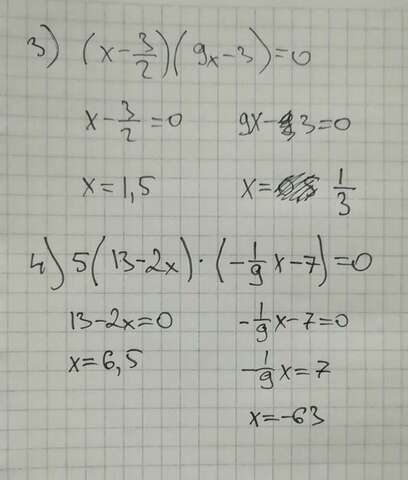 3) (x-3/2)(9x-3)=0
x-3/2=0 9x-3=0
x=1,5 x= 1/3
4) 5(13-2x)·(-1/9x-7)=0
13-2x=0 -1/9x-7=0
x=6,5 -1/9x=7
x=-63